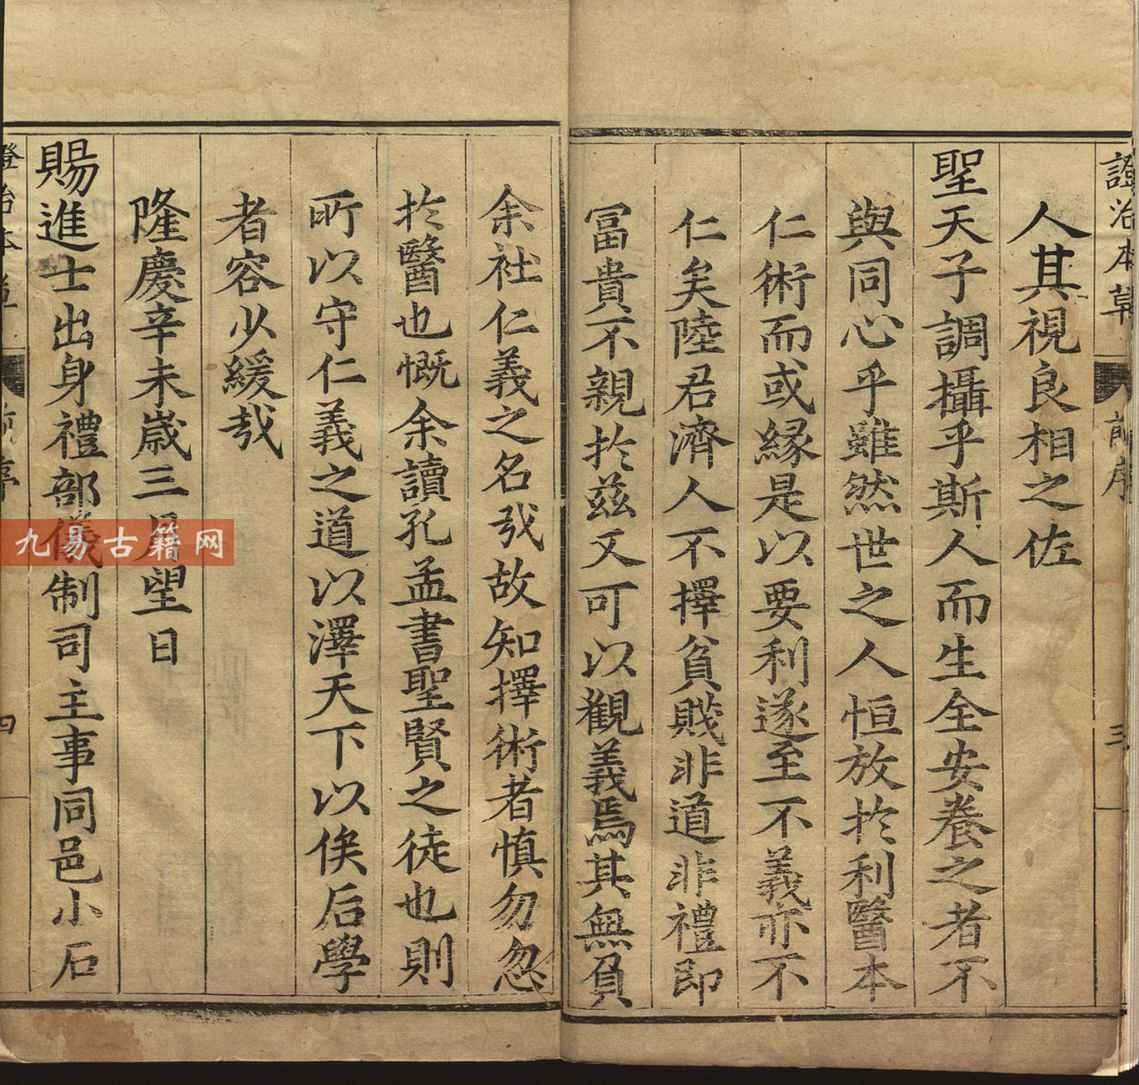 證治本草 前序 三
人其視良相之佐
聖天子調攝乎斯人而生全安養之者不
與同心乎雖然世之人恒放於利醫本
仁術而或緣是以要利遂至不義亦不
仁矣陸君濟人不擇貧賤非道非禮即
冨貴不親於兹又可以觀義焉其無負
余社仁義之名㢤故知擇術者慎勿忽
於醫也慨余讀孔孟書聖賢之徒也則
所以守仁義之道以澤天下以俟后學
者容少緩㢤
隆慶辛未歲三月望日
賜進士出身禮部儀制司主事同邑小石
四
九易古籍网